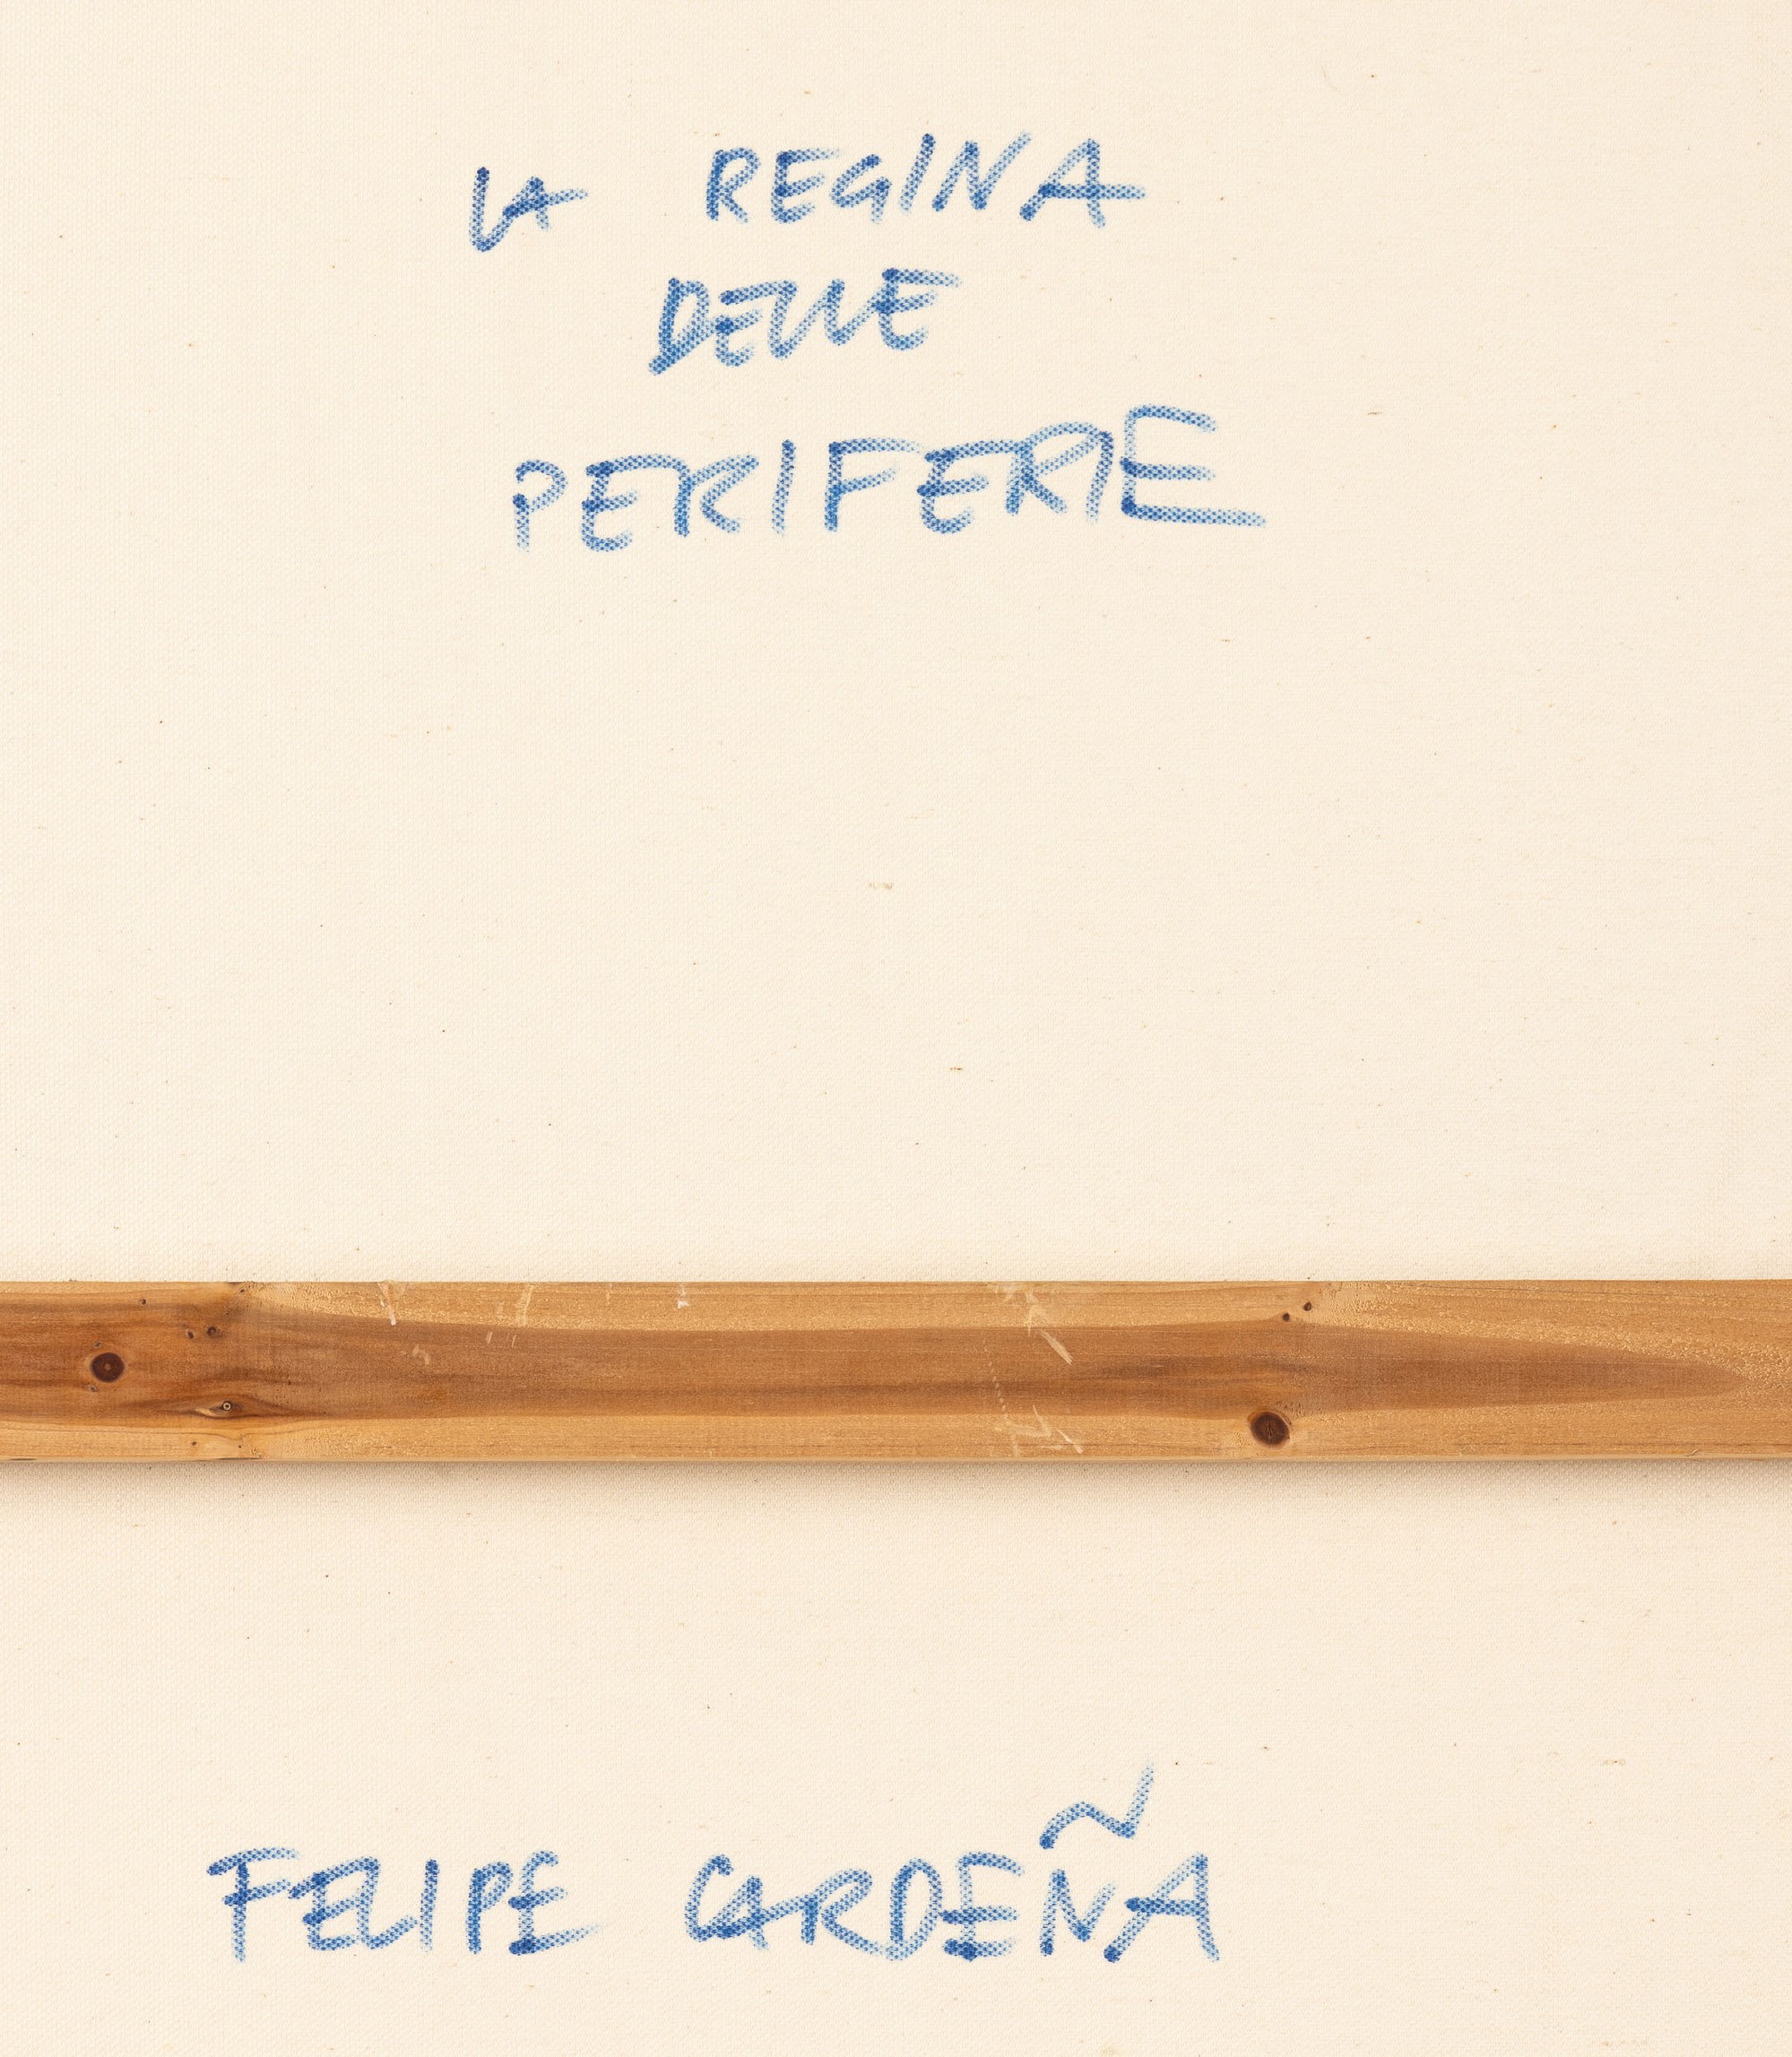 LA REGINA
DELLE
PERIFERIE
FELIPE CARDEÑA